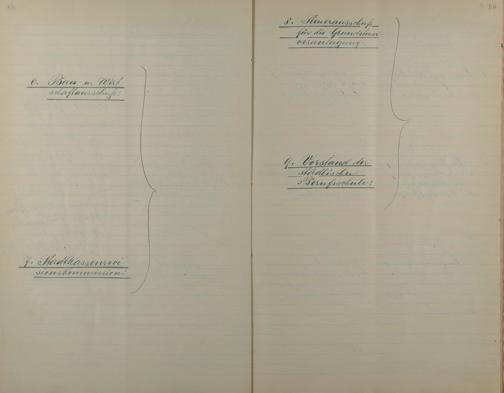 6. Bau- u. Wirt
schaftsausschuß:
7. Stadtkassenrevi
sionskommission:
8. Steuerausschuß
für die Grundsteuer
veranlagung.
9. Vorstand der
städtischen
Berufsschule: